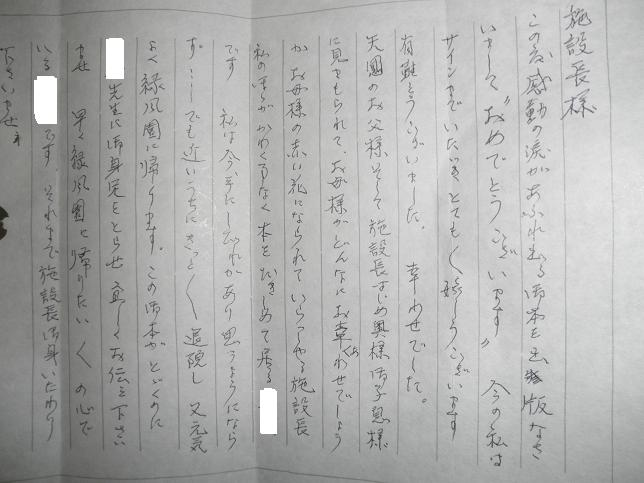 施設長様
この度感動の涙があふれ出る御本を出版なさ
いまして〝おめでとうございます〟今の私は
サインまでいただきとても〱嬉しうございます
有難とうございました。幸わせでした。
天国のお父様そして施設長はじめ奥様御子息様
に見もられて、お母様がどんなにお幸わせでしょう
か お母様の赤い花になられていらっしゃる施設長
私のほうがかわく事なく本をだきしめて居る
です 私は今、手にしびれがあり思うようになら
ず……でも近いうちにきっと〱退院し 又元気
よく緑風園に帰ります。この御本がとどくのに
先生に御身完をとらせ宜しくお伝え下さい
ませ 早く緑風園に帰りたい〱の心で
いる です。それまで施設長御身いたわり
下さいませネ